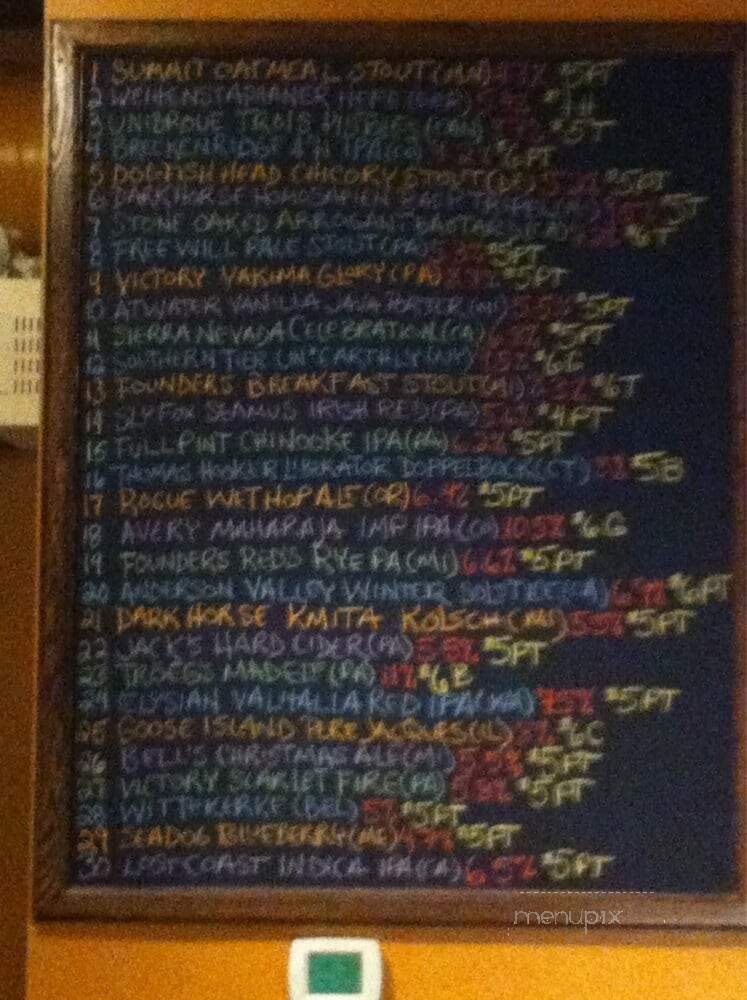 1 SUMMIT OATMEAL STOUT (MN) $5PT
2 WEIHENSTEPHANER HEFE
3 UNIBROUE TROIS PISTOLES (CAN) $5T
4 BRECKENRIDGE IPA (CO) $6PT
5 DOGFISH HEAD CHICORY STOUT (DE) $5PT
6 DARK HORSE
7 STONE OAKED ARROGANT BASTARD (CA) $6T
8 FREE WILL PALE STOUT (PA) $5PT
9 VICTORY YAKIMA GLORY (PA) $5PT
10 ATWATER VANILLA JAVA PORTER (MI) $5PT
11 SIERRA NEVADA CELEBRATION (CA) $5PT
12 SOUTHERN TIER UN*EARTHLY (NY) $6G
13 FOUNDERS BREAKFAST STOUT (MI) $6T
14 SLY FOX SEAMUS IRISH RED (PA) $4PT
15 FULL PINT CHINOOKE IPA (PA) 6.2% $5PT
16 THOMAS HOOKER LIBERATOR DOPPELBOCK (CT) 8% 5B
17 ROGUE WETHOP ALE (OR) $5PT
18 AVERY MAHARAJA IMP IPA (CO) 10.5% $6G
19 FOUNDERS RED'S RYE PA (MI) 6.6% $5PT
20 ANDERSON VALLEY WINTER SOLSTICE (CA) $6PT
21 DARK HORSE KMITA KOLSCH (MI) $5PT
22 JACK'S HARD CIDER (PA) 5.5% $5PT
23 TROEGS MADELF (PA) 11% $6B
24 ELYSIAN VALHALLA RED IPA (WA) 7.5% $5PT
25 GOOSE ISLAND PERE JACQUES (IL) 8% $6C
26 BELL'S CHRISTMAS ALE (MI) $5PT
27 VICTORY SCARLET FIRE (PA) $5PT
28 WITTEKERKE (BEL) 5% $5PT
29 SEADOG BLUEBERRY (ME) $5PT
30 LOST COAST INDICA IPA (CA) 6.5% $5PT
menupix